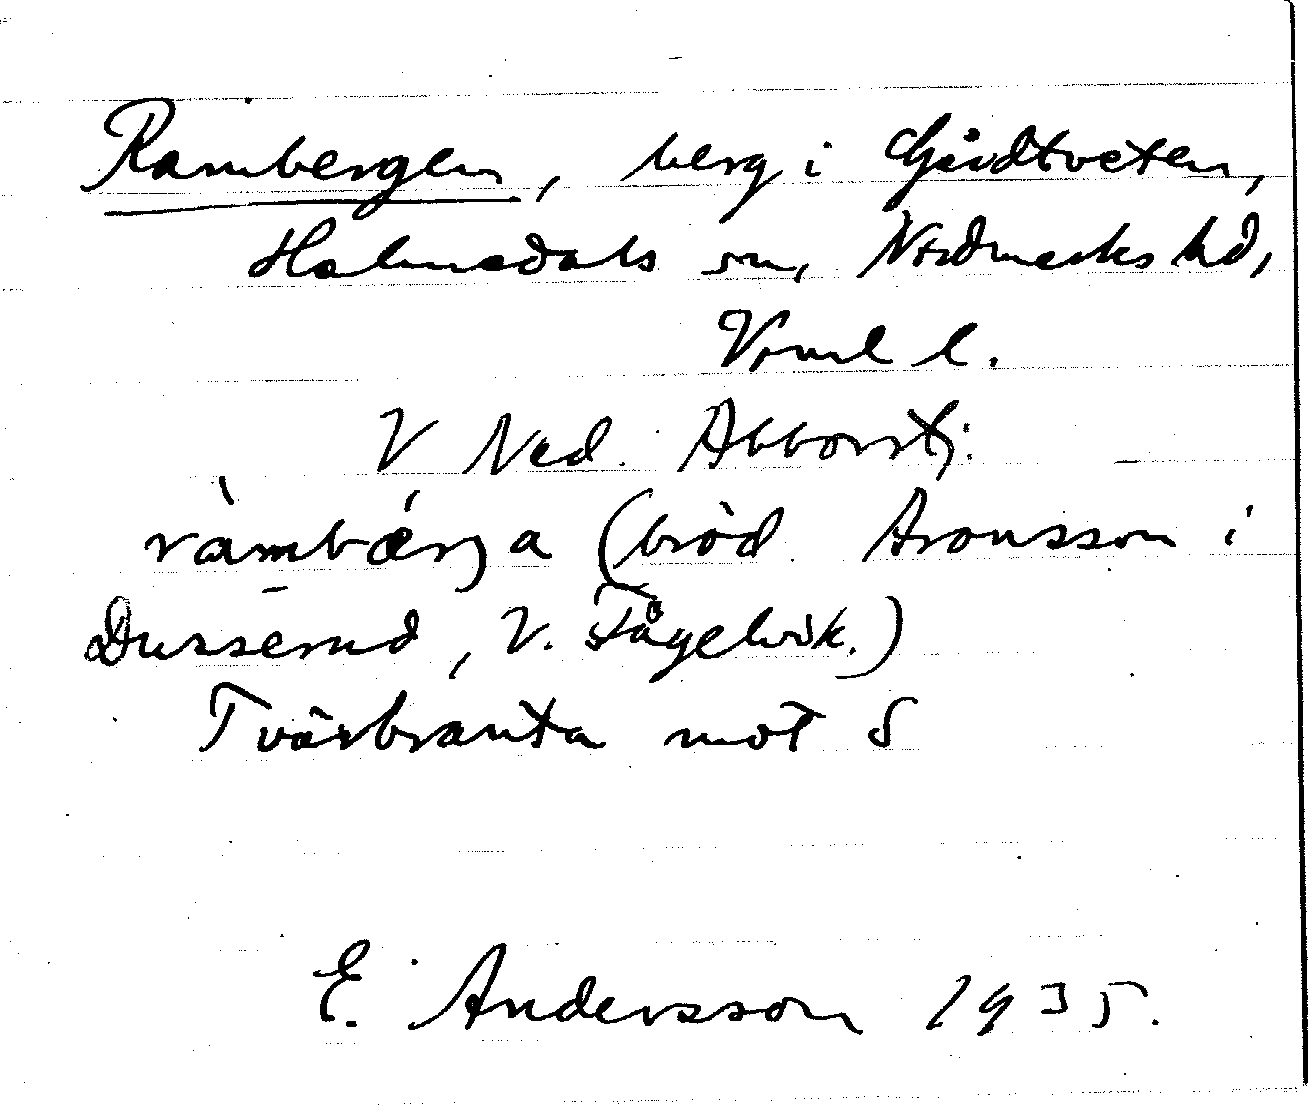 Rambergen, berg i Gårdtveten,
Holmedals sn, Nordmarks hd,
Vrml l.
V Ned. Abborrtj.
ràmbǽrja (bröd. Aronsson i
Dusserud, V. Fågelvik.)
Tvärbranta mot S
E. Andersson 1935.